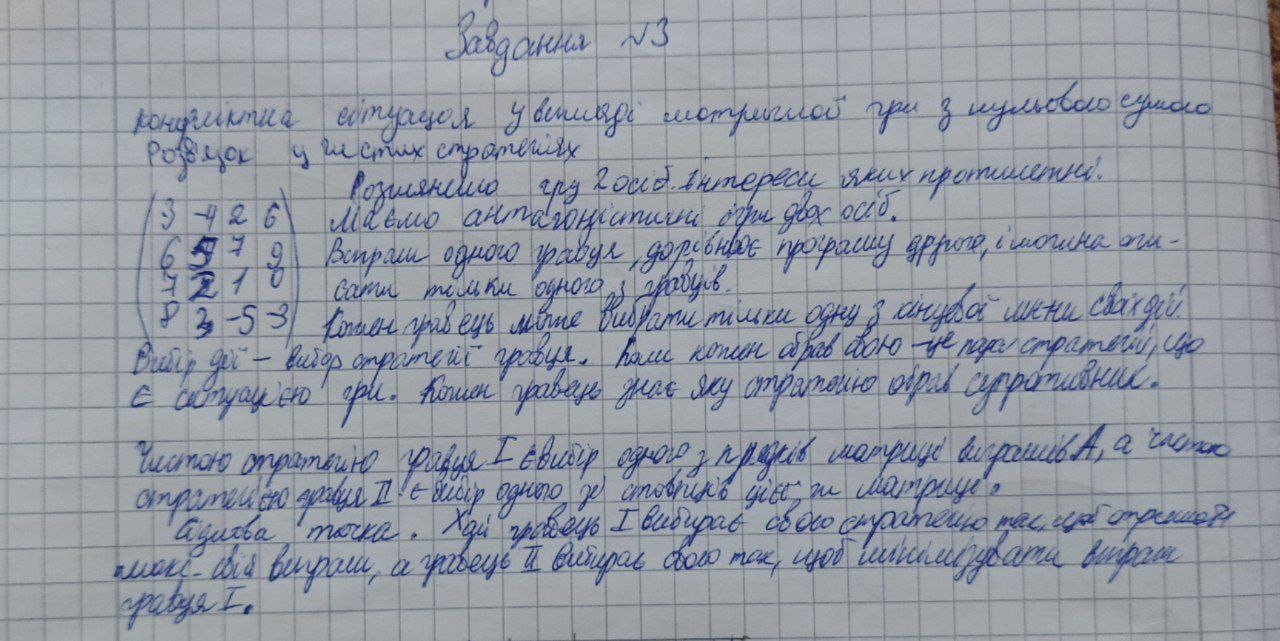 Завдання №3
конфліктна ситуація у вигляді матричної гри з нульовою сумою
Розв'язок у чистих стратегіях
Розглянемо гру 2 осіб інтереси яких протилежні.
3 -4 2 6 Маємо антагоністичні ігри двох осіб.
6 7 9 Виграш одного гравця, дорівнює програшу другого, і можна опи-
7 2 1 0 сати тільки одного з гравців.
8 3 -5 -3 Кожен гравець може вибрати тільки одну з кінцевої своїх дій.
Вибір дії - вибор стратегії гравця. Коли кожен обрав свою - це пара стратегій, що
є ситуацією гри. Кожен гравець знає яку стратегію обрав супротивник.
Чистою стратегією гравця I є вибір одного з рядків матриці виграшів А, а чистою
стратегією гравця II є вибір одного зі стовпців цієї ж матриці.
Сідлова точка. Хай гравець I вибирає свою стратегію так, щоб отримати
макс. свій виграш, а гравець II вибирає свою так, щоб мінімізувати виграш
гравця I.